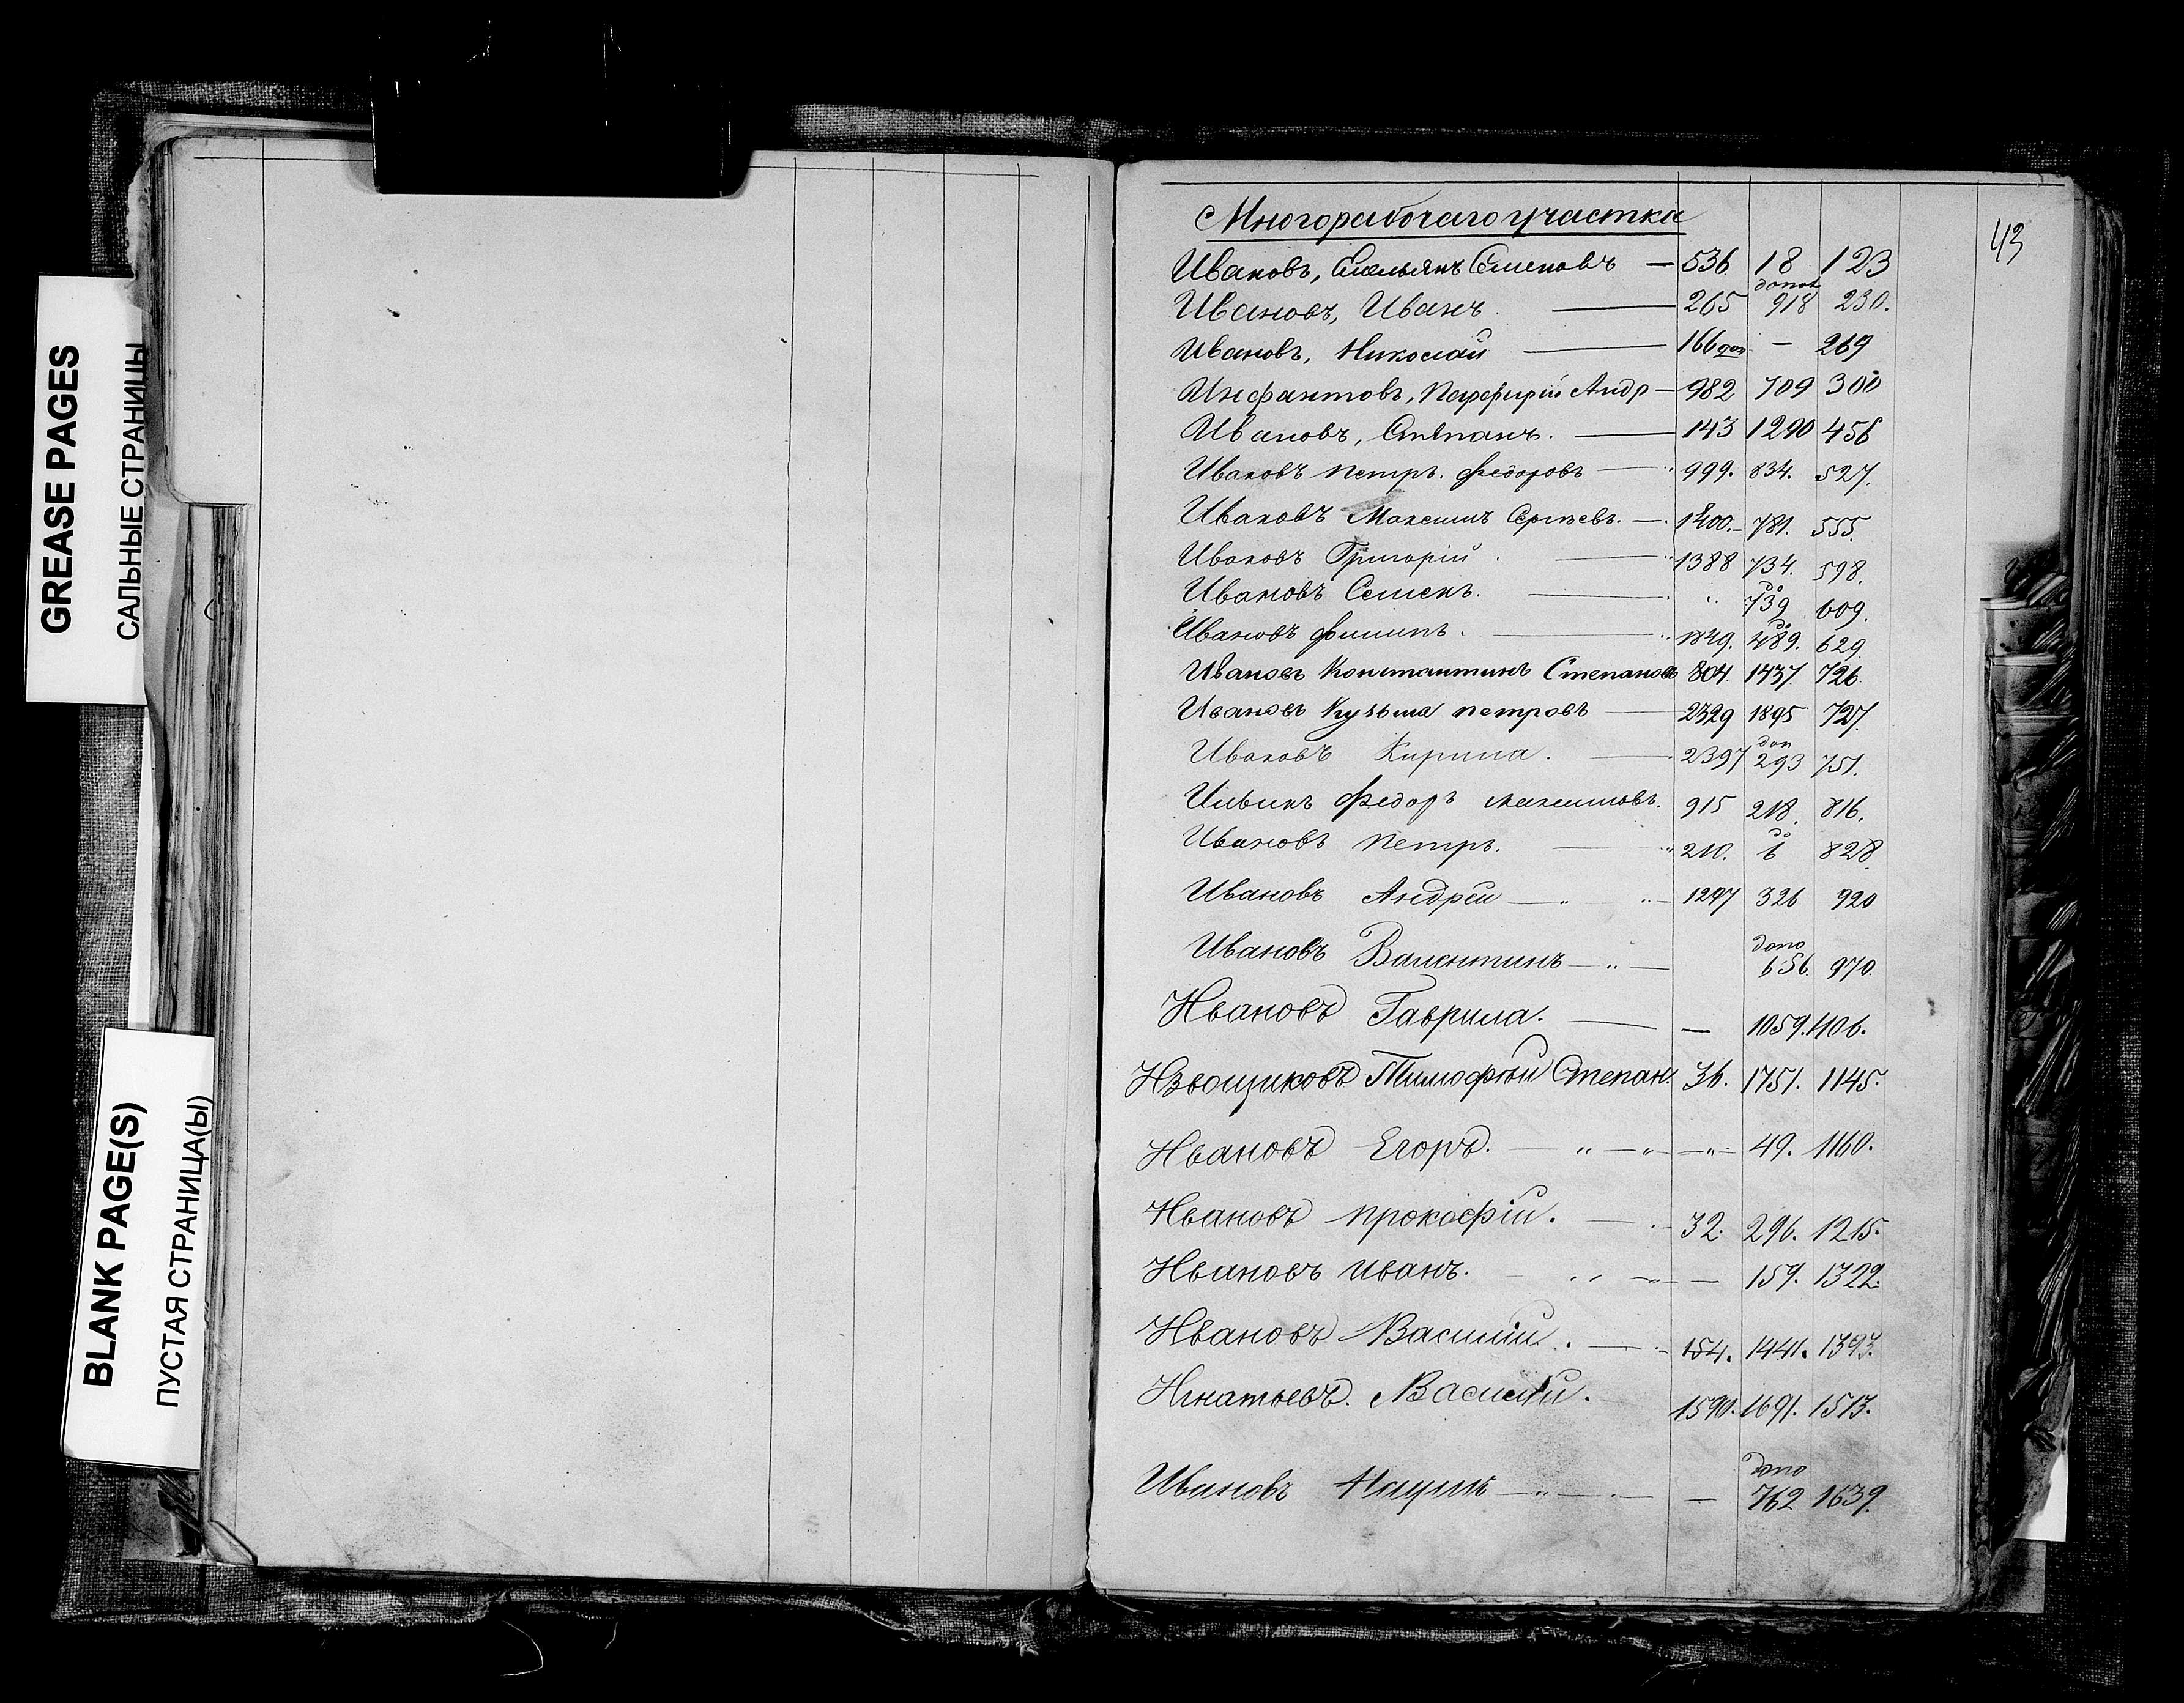 GREASE PAGES
САЛЬНЫЕ СТРАНИЦЫ
BLANK PAGE(S)
ПУСТАЯ СТРАНИЦА(Ы)
43
Многорабочаго участка
Ивановъ, Емельянъ Семеновъ — 536. 18 123
Ивановъ, Иванъ — 265 допол 918 230.
Ивановъ, Николай — 166 доп — 269
Инфантовъ, Парфирій Андр — 982 709 300
Ивановъ, Степанъ. — 143 1290 456
Ивановъ Петръ. Федоровъ — 999. 834. 527.
Ивановъ Максимъ Сергѣевъ. — 1400. — 781. 555.
Ивановъ Григорій . — 1388 734. 598.
Ивановъ Семенъ. — " до 739 609.
Ивановъ Филипъ. — 1849. до 489. 629
Ивановъ Константинъ Степановъ 804. 1437. 726.
Ивановъ Кузьма Петровъ — 2329 1895 727.
Ивановъ Кирила. — 2397 доп 293 751.
Ильинъ Федоръ Максимовъ. 915 218. 816.
Ивановъ Петръ. — " 210. до 6 828
Ивановъ Андрей — " " — 1297 326 920
Ивановъ Валентинъ — " — допо 656. 970.
Ивановъ Гаврила. — — 1059. 1106.
Извощиковъ Тимофѣй Степан. 36. 1751. 1145.
Ивановъ Егоръ. — " — " — " — 49. 1160.
Ивановъ Прокофій. — 32. 296. 1215.
Ивановъ Иванъ. — " — " — 159. 1322.
Ивановъ Василий. — 154. 1441. 1393.
Игнатьевъ. Василий. 1590. 1691. 1513.
Ивановъ Наумъ — " — — допо 762 1639.